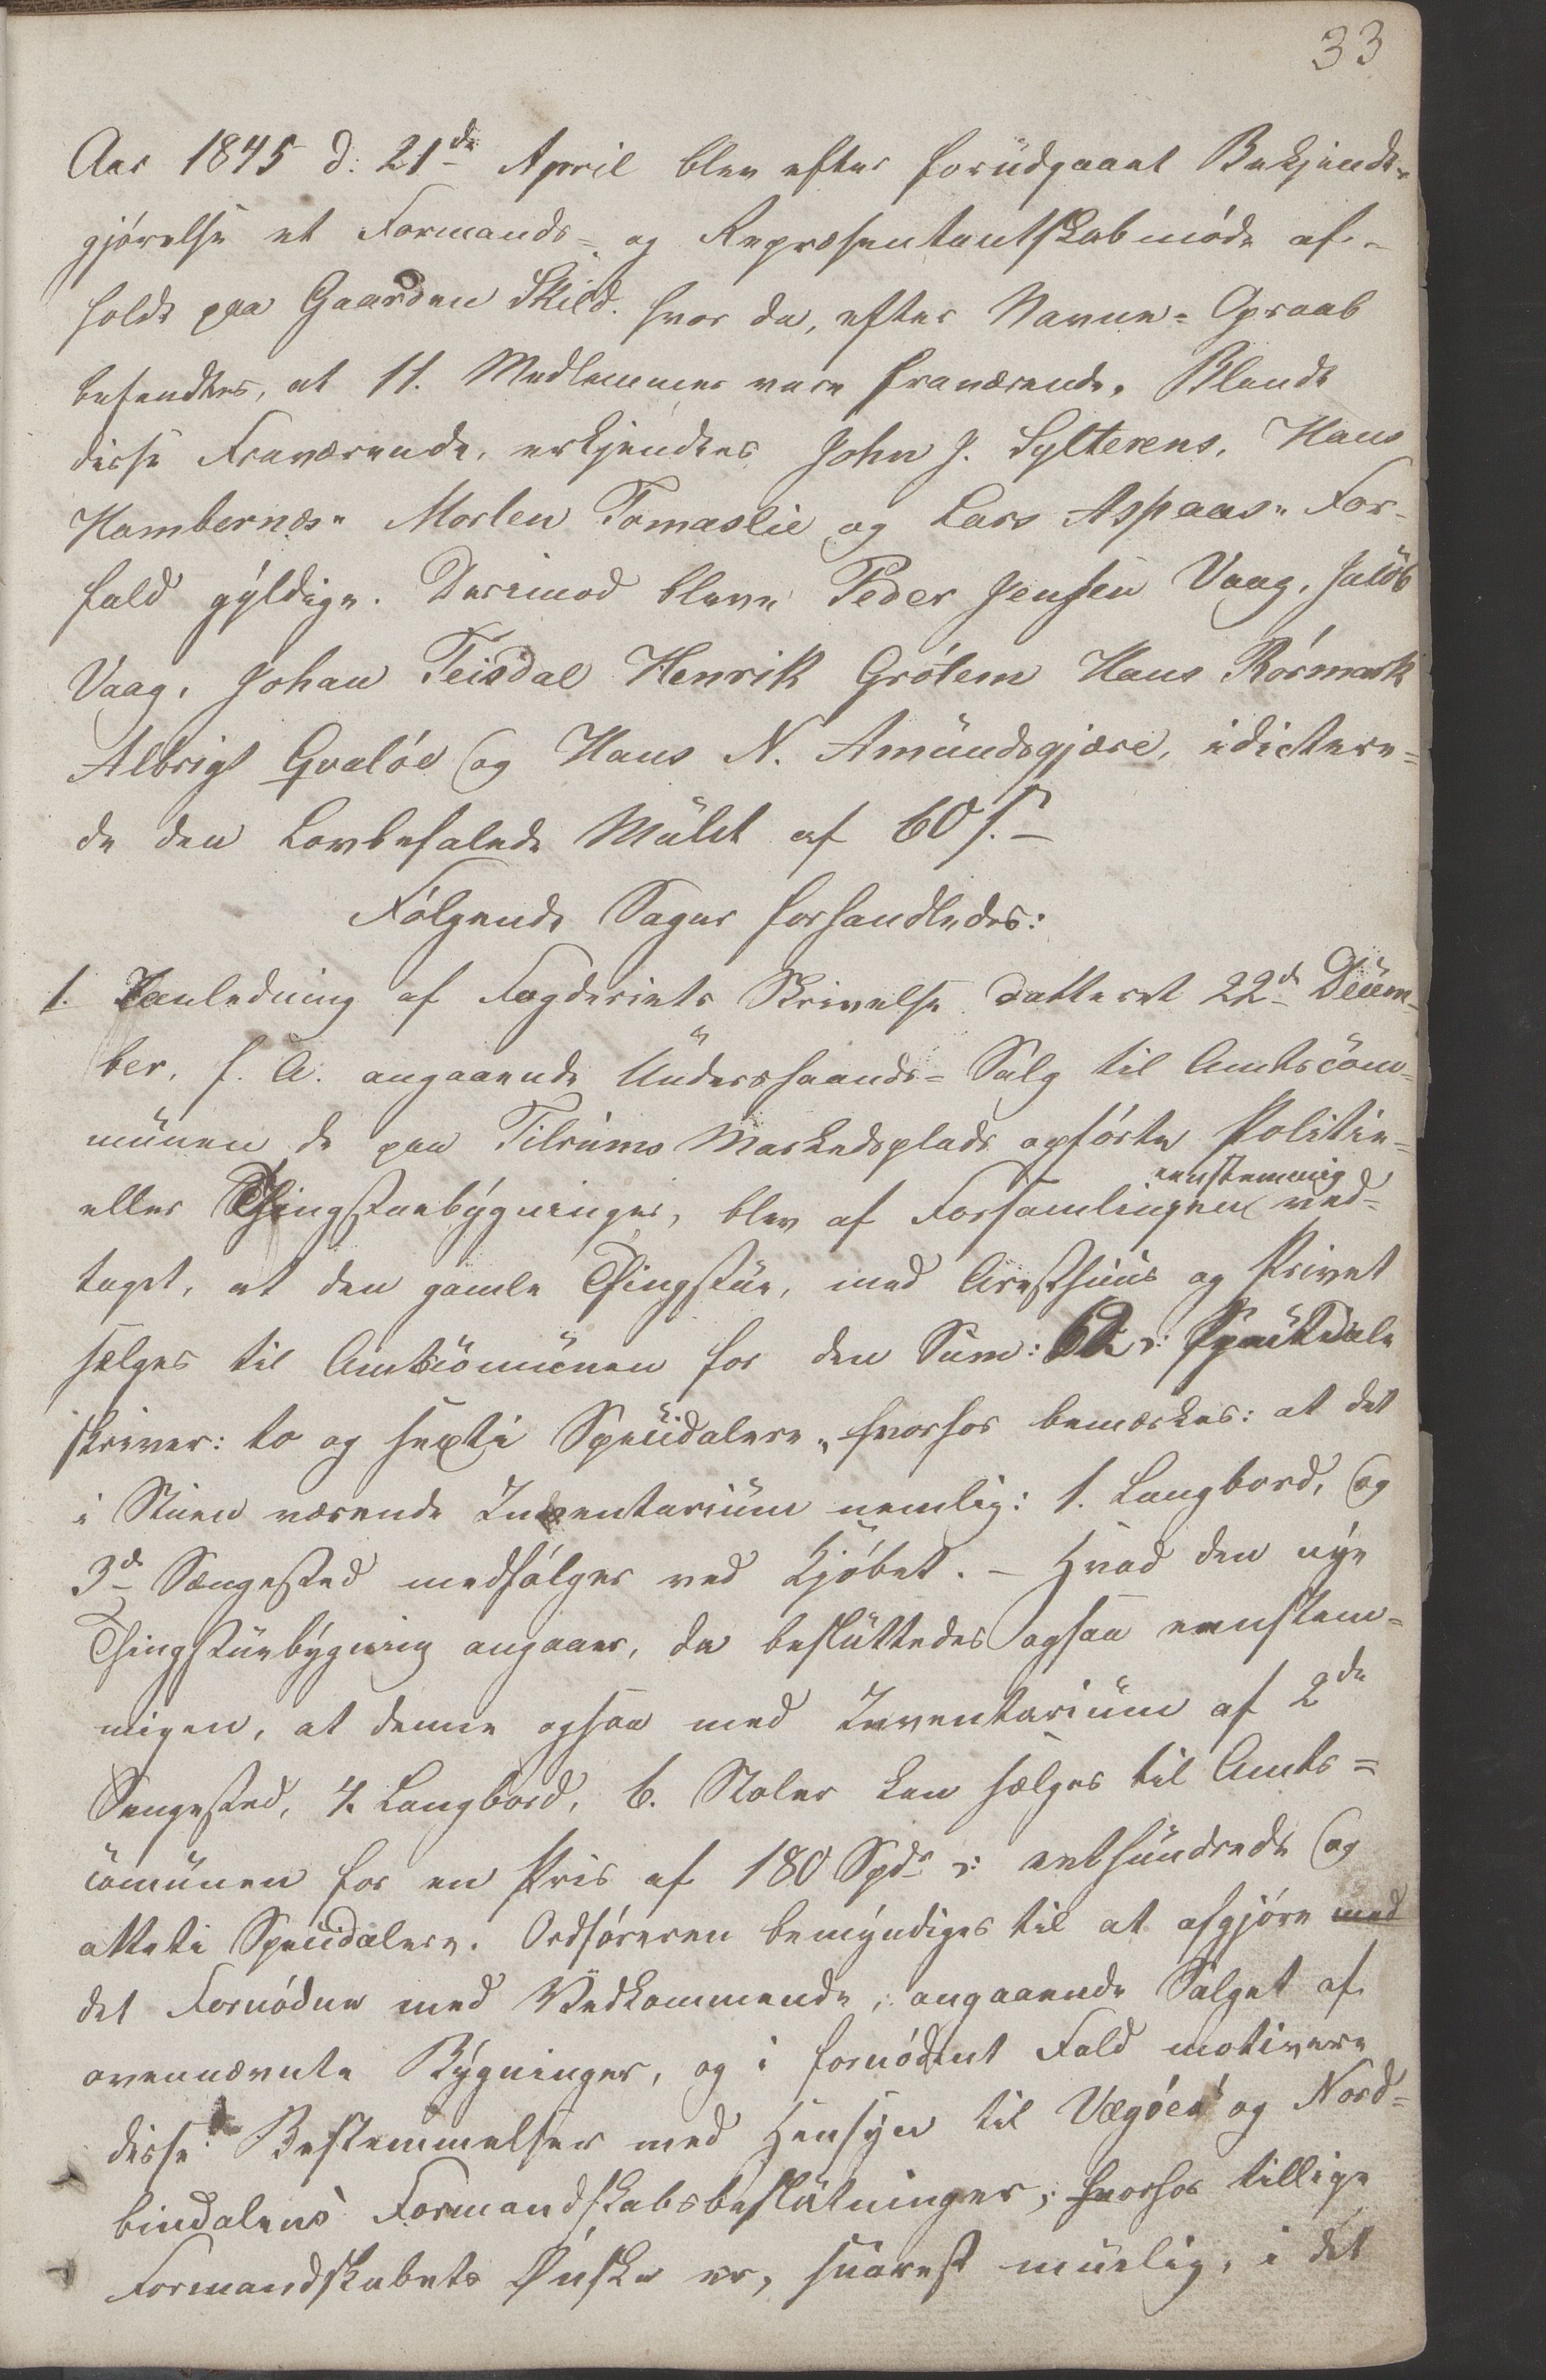 33
Aar 1845 d: 21de April blev efter forudgaaet Bekjendt-
gjørelse et Formands- og Repræsentantskabmøde af-
holdt paa Gaarden Skild. hvor da, efter Navne-Opraab
befandtes, at 11. Medlemmer vare fraværende. Blandt
disse Fraværende, erkjendtes John J. Sylterens, Hans
Hambernæs" Morten Tomaslie og Lars Aspaas" For-
fald gyldige. Derimod bleve Peder Jensen Vaag, Jakob
Vaag, Johan Teisdal Henrik Grøtem Hans Rørmark
Albrigt Qvaløe og Hans N. Amundsgjære, idictere-
de den Lovbefalede Mulct af 60 s.-
Følgende Sager forhandledes:
1. Ianledning af Fogderiets Skrivelse datteret 22d Decem-
ber. f. A. angaaende Undershaands-Salg til Amtscom-
munen de paa Tilrums Markedsplads opførte Politie-
eller Thingstuebygninger, blev af Forsamlingen eenstemmig ved-
taget, at den gamle Thingstue, med Aresthuus og Privet
sælges til Amtscomunen for den Sum: 62 ɔ: Specidale
skriver: to og sexti Specidalere" hvorhos bemærkes: at det
i Stuen værende Inventarium nemlig: 1. Langbord, og
3d Sængested medfølger ved Kjøbet. - Hvad den nye
Thingstuebygning angaaer, da besluttedes ogsaa eenstem-
migen, at denne ogsaa med Inventarium af 2de
Sengested, 4. Langbord, 6. Stoler kan sælges til Amts-
comunen for en Pris af 180 Spdr ɔ: eethundrede og
otteti Specidalere. Ordføreren bemyndiges til at afgjøre med
det Fornødne med Vedkommende, angaaende Salget af
ovennævnte Bygninger, og i fornødent Fald motivere
disse Bestemmelser med Hensyn til Vægøes og Nord-
bindalens Formandskabsbeslutninger; hvorhos tillige
Formandskabets Ønske er, snarest muelig, i det